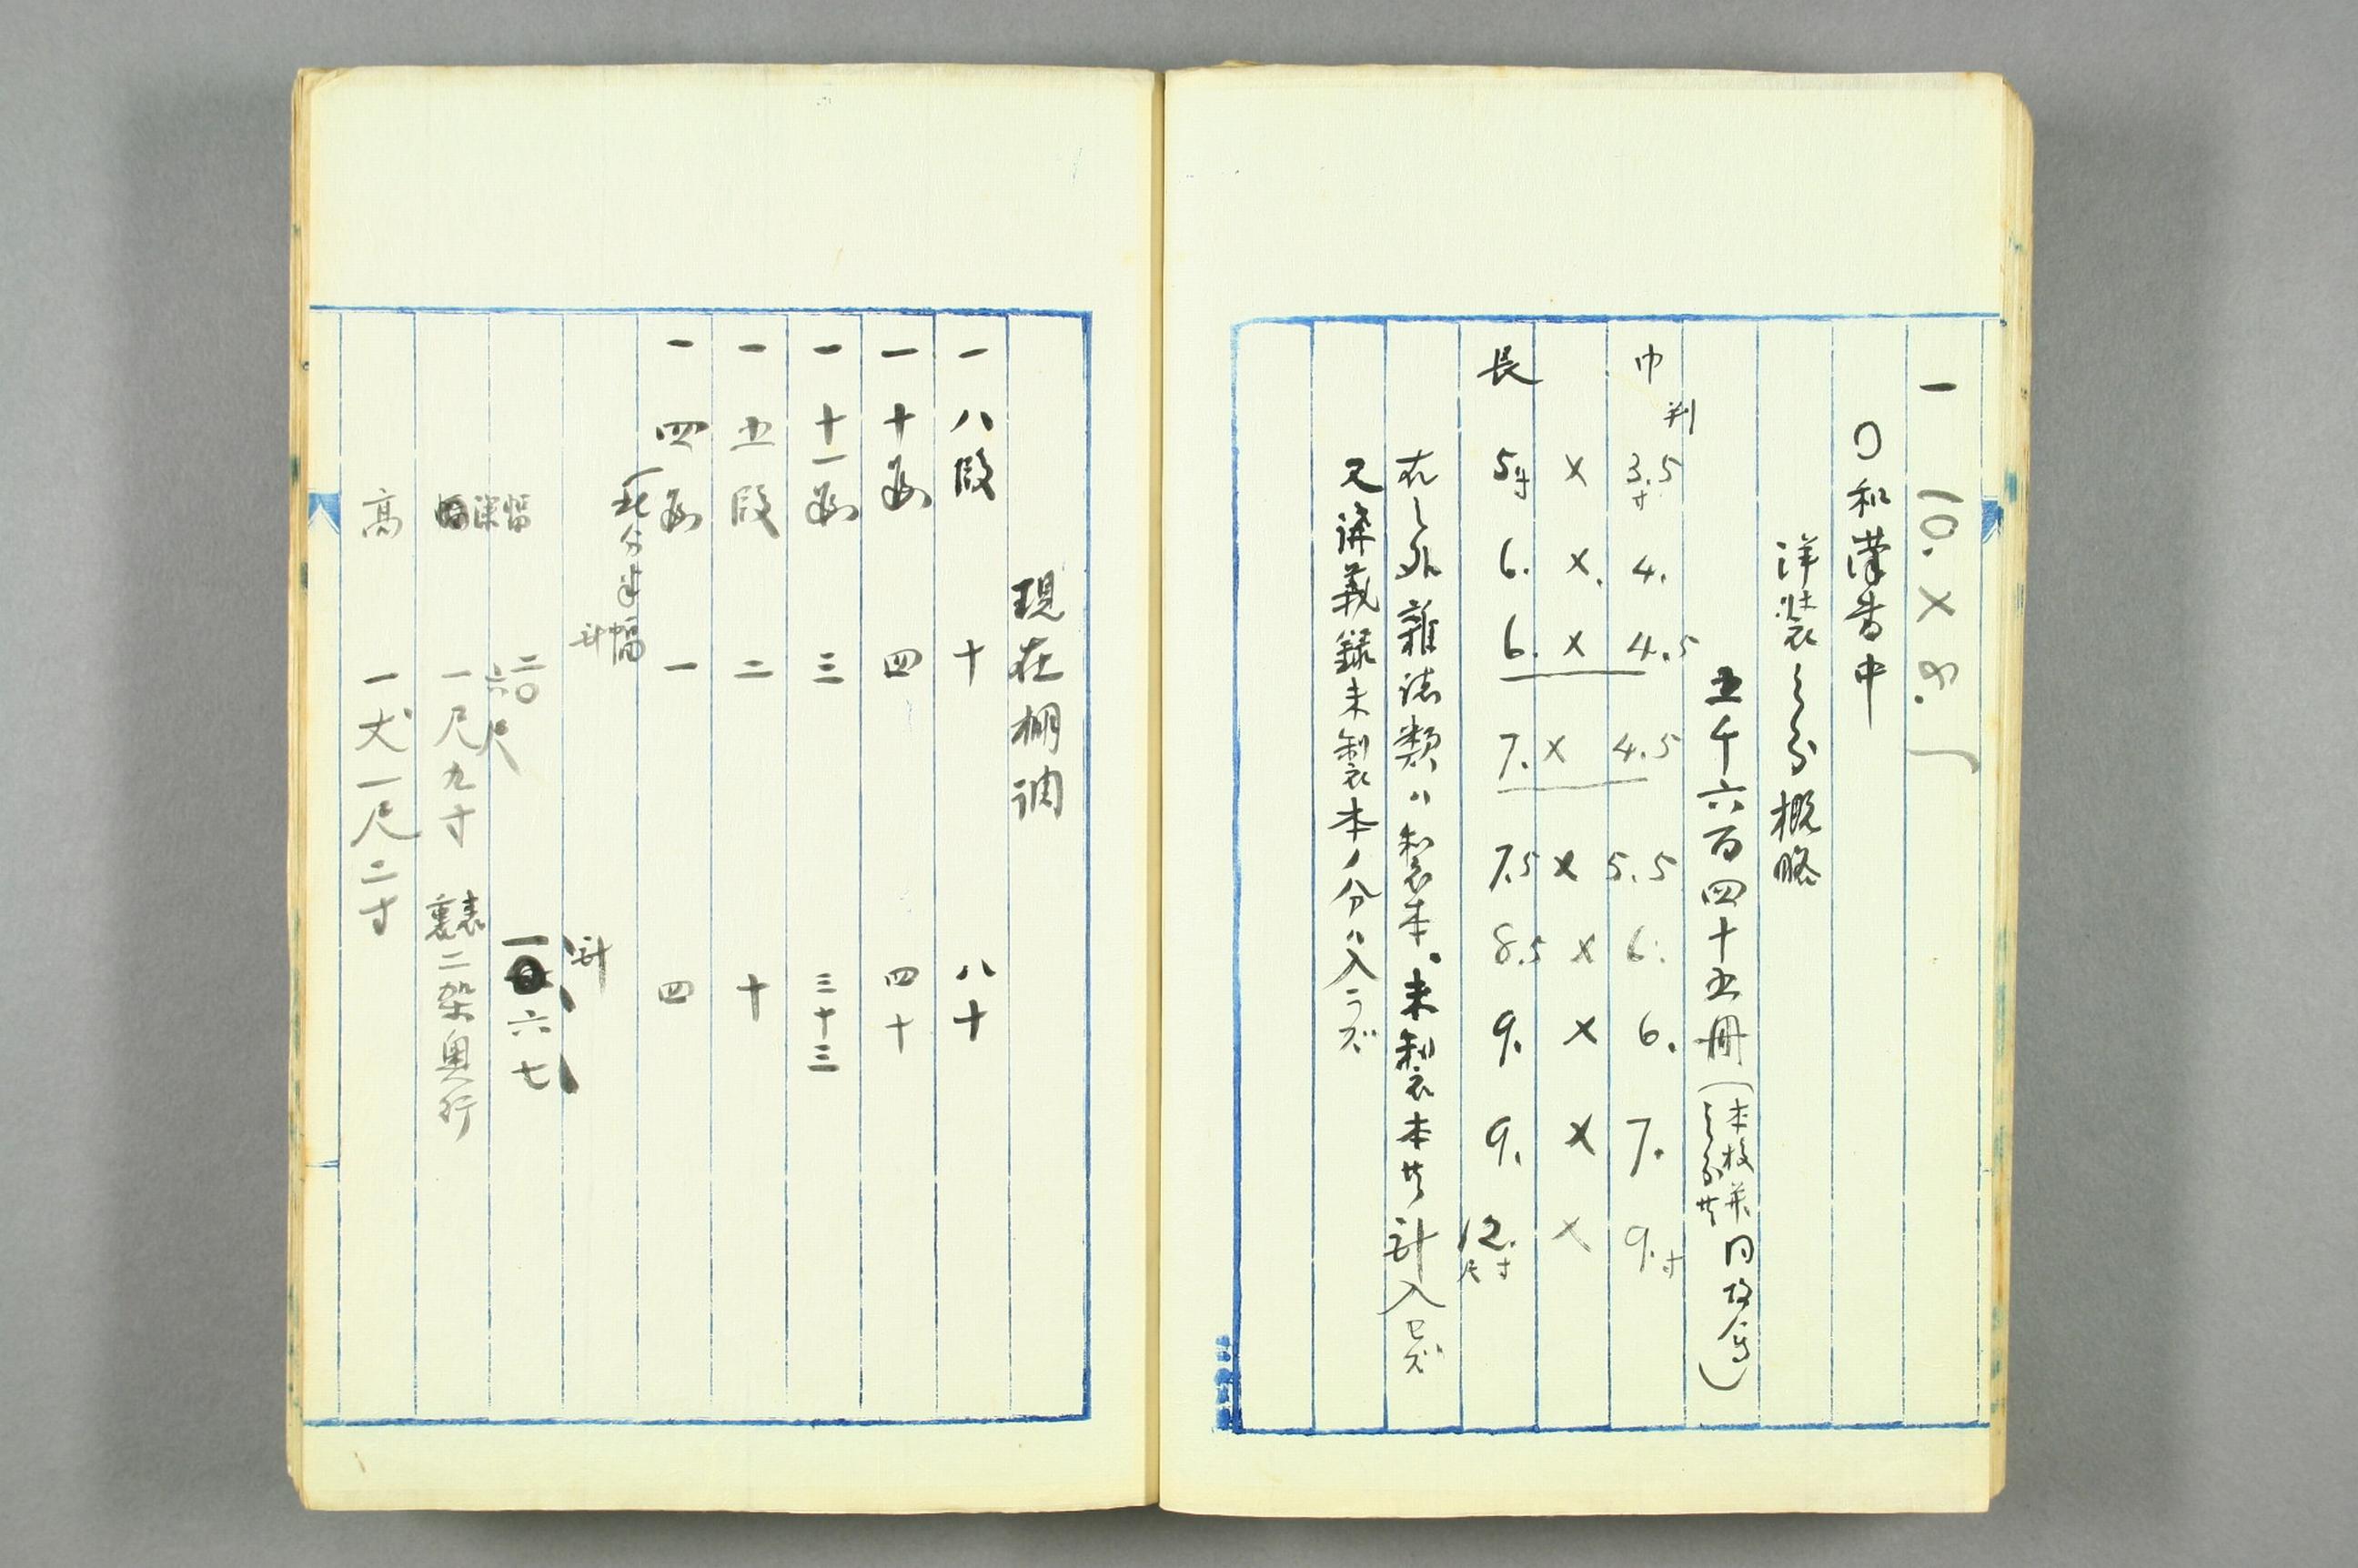 一 10. × 8.
○和漢書中
洋装之分概略
五千六百四十五冊(本校並同好会之分共)
巾 判 3.5寸 4. 4.5 4.5 5.5 6. 6. 7. 9.寸
× × × × × × × × ×
長 5寸 6. 6. 7. 7.5 8.5 9. 9. 12.尺寸
右之外雑誌類ハ製本、未製本共計入セズ
又講義録未製本ノ分ハ入ラズ
現在棚調
一 八段 十 八十
一 十函 四 四十
一 十一函 三 三十三
一 五段 二 十
一 四函 一 四
(此分半幅
計 計
幅 二〇 一六七
深 六尺
一尺九寸 表裏二架奥行
高 一丈一尺二寸